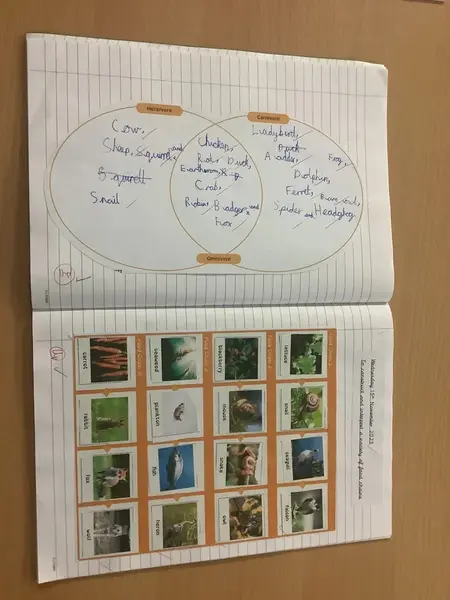 Herbivore
Carnivore
Cow,
Sheep, Squirrel and
Squirell
Snail
Chicken,
Duck,
Earthworm, Pig,
Crab,
Robin, Badger, and
Fox
Ladybird,
Frog,
Dolphin,
Ferret,
Spider and Hedgehog
Omnivore
Wednesday 15th November 2023
To construct and interpret a variety of food chains
lettuce
snail
seagull
falcon
blackberry
mouse
snake
owl
seaweed
plankton
fish
heron
carrot
rabbit
fox
wolf